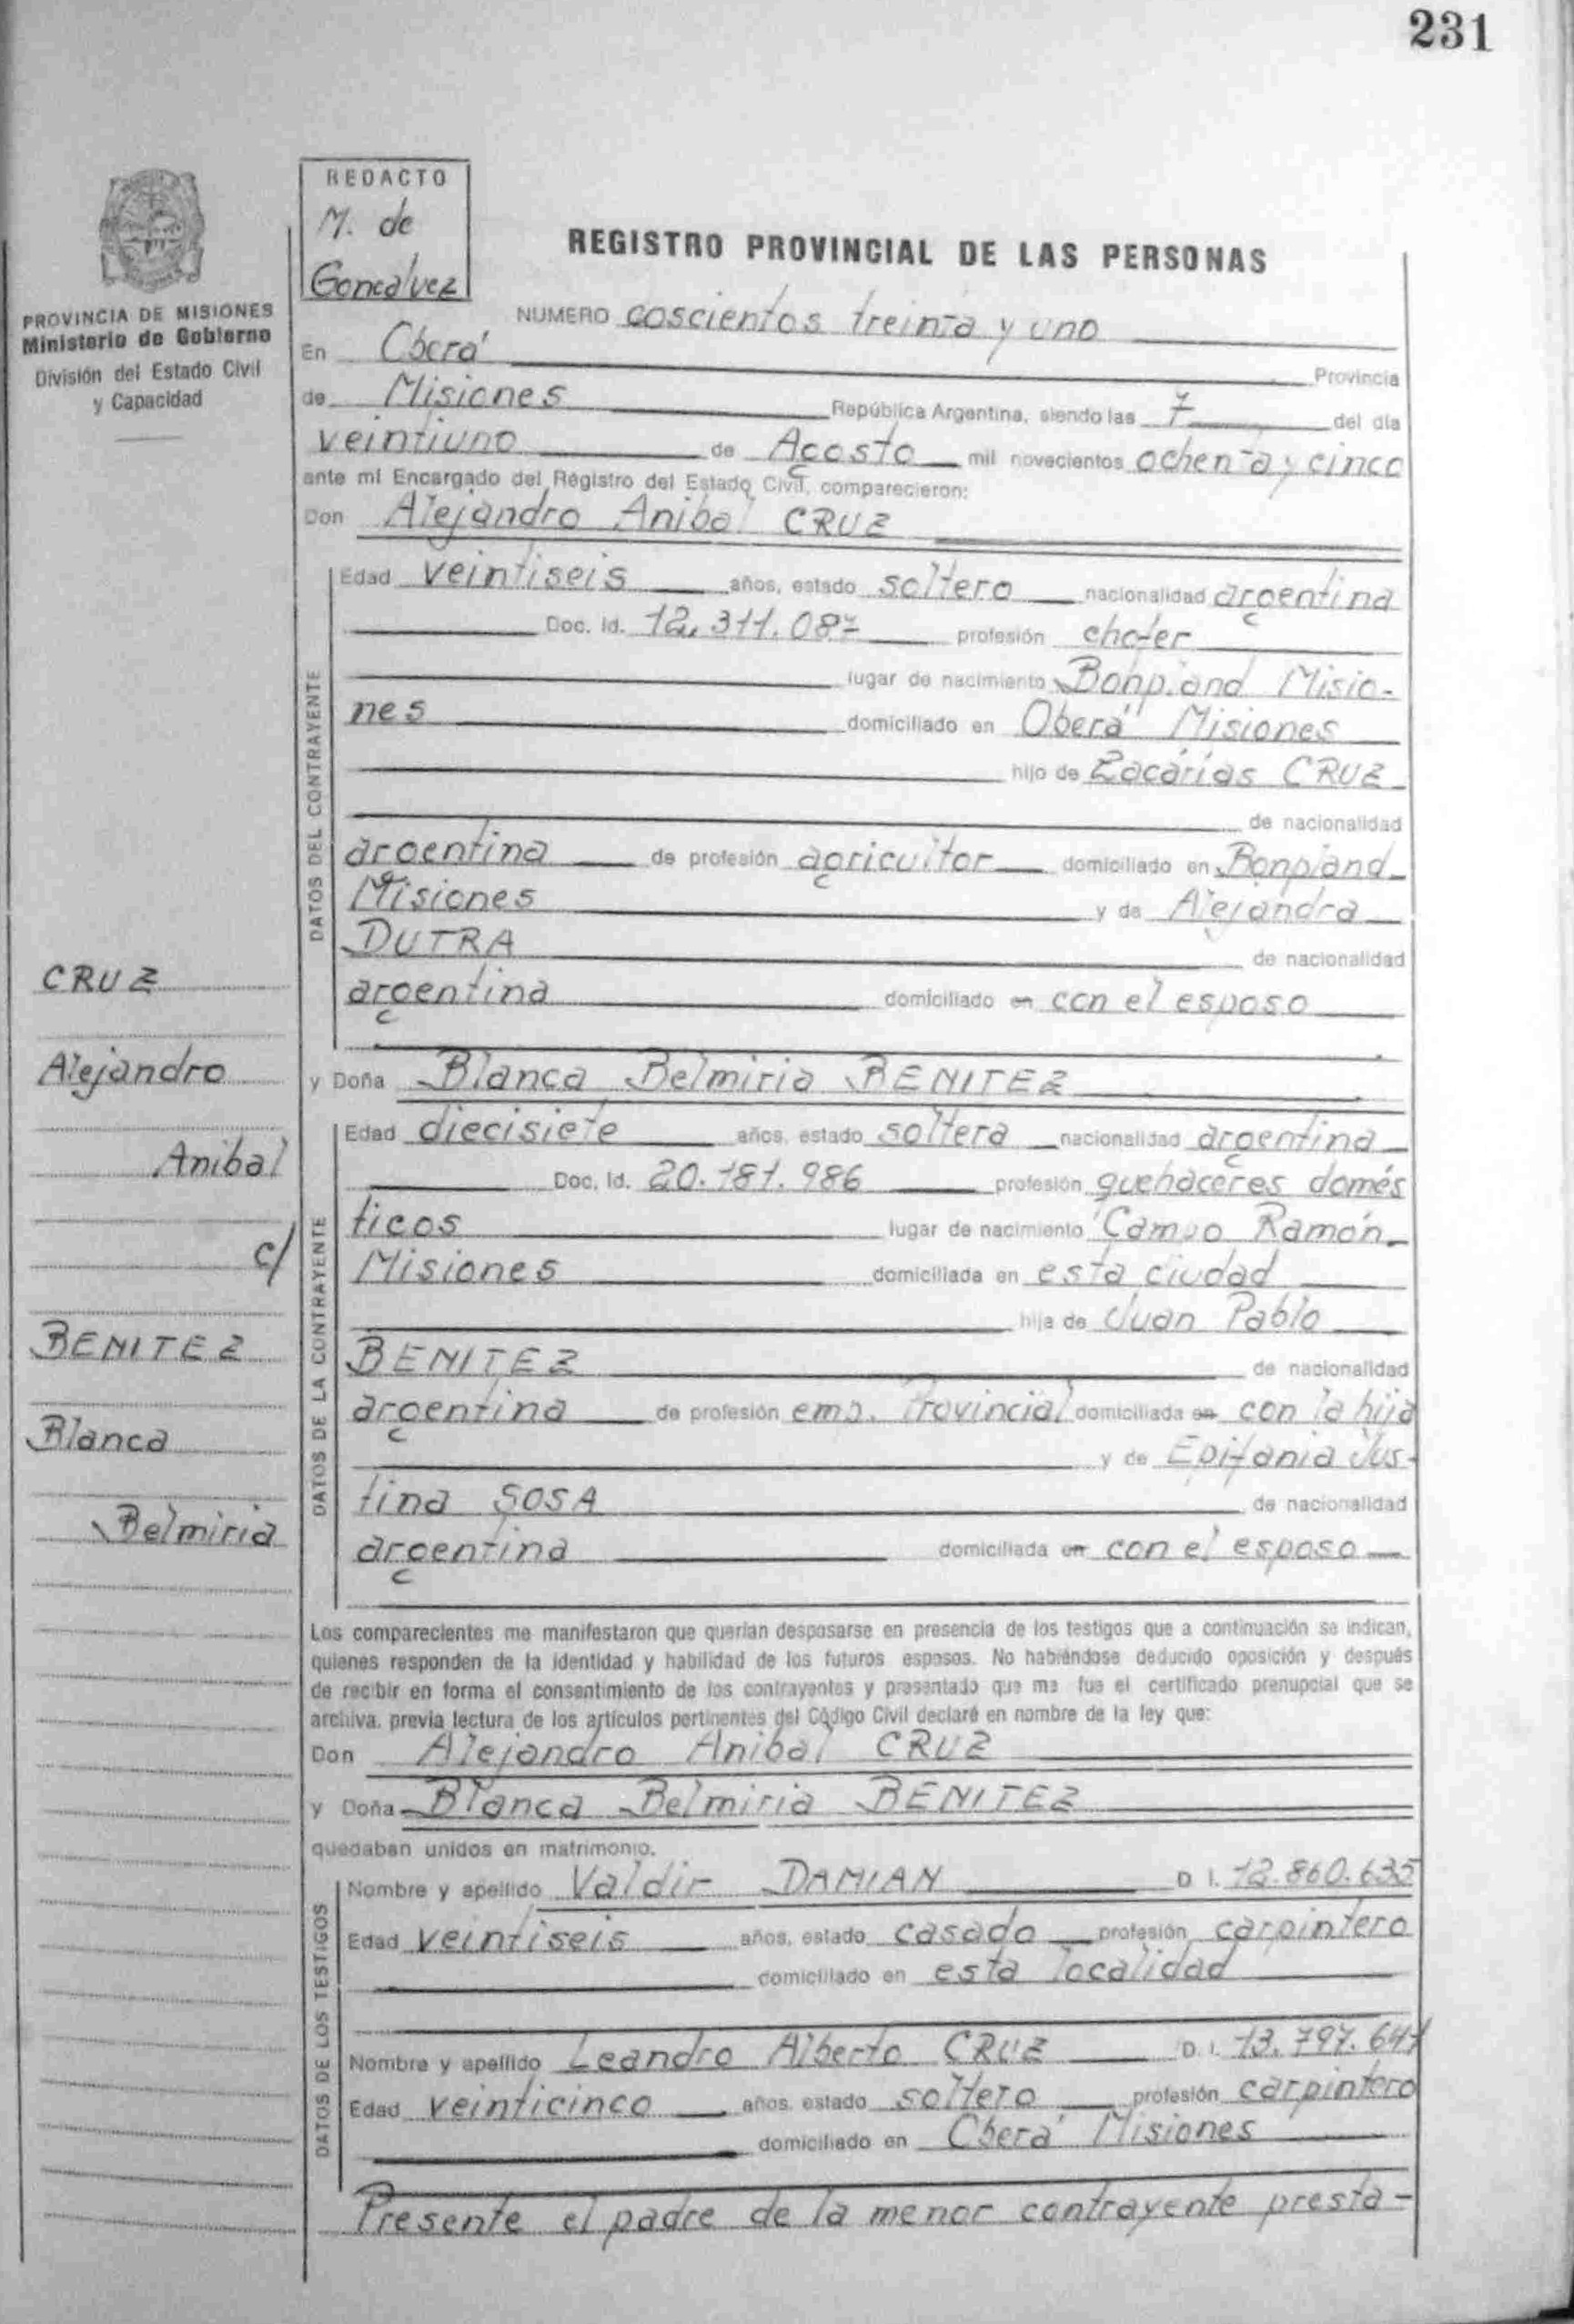 231
REDACTO
M. de
Goncalvez
REGISTRO PROVINCIAL DE LAS PERSONAS
PROVINCIA DE MISIONES
Ministerio de Gobierno
División del Estado Civil
y Capacidad
NUMERO doscientos treinta y uno
En Oberá Provincia
de Misiones República Argentina, siendo las 7 del dia
veintiuno de Agosto mil novecientos ochenta y cinco
ante mi Encargado del Registro del Estado Civil, comparecieron:
Don Alejandro Anibal CRUZ
DATOS DEL CONTRAYENTE
Edad veintiseis años, estado soltero nacionalidad argentina
Doc. Id. 12.311.087 profesión chofer
lugar de nacimiento Bonpland Misio-
nes domiciliado en Oberá Misiones
hijo de Zacarías CRUZ
de nacionalidad
argentina de profesión agricultor domiciliado en Bonpland
Misiones y de Alejandra
DUTRA de nacionalidad
argentina domiciliado en con el esposo
y Doña Blanca Belmiria BENITEZ
DATOS DE LA CONTRAYENTE
Edad diecisiete años, estado soltera nacionalidad argentina
Doc. Id. 20.181.986 profesión quehaceres domés
ticos lugar de nacimiento Campo Ramón
Misiones domiciliada en esta ciudad
hija de Juan Pablo
BENITEZ de nacionalidad
argentina de profesión emp. Provincial domiciliada en con la hija
y de Epifania Jus-
tina SOSA de nacionalidad
argentina domiciliada en con el esposo
CRUZ
Alejandro
Anibal
c/
BENITEZ
Blanca
Belmiria
Los comparecientes me manifestaron que querian desposarse en presencia de los testigos que a continuación se indican,
quienes responden de la identidad y habilidad de los futuros esposos. No habiéndose deducido oposición y después
de recibir en forma el consentimiento de los contrayentes y presentado que me fue el certificado prenupcial que se
archiva, previa lectura de los artículos pertinentes del Código Civil declaré en nombre de la ley que:
Don Alejandro Anibal CRUZ
y Doña Blanca Belmiria BENITEZ
quedaban unidos en matrimonio.
DATOS DE LOS TESTIGOS
Nombre y apellido Valdir DAMIAN D.I. 12.860.635
Edad veintiseis años, estado casado profesión carpintero
domiciliado en esta localidad
Nombre y apellido Leandro Alberto CRUZ D.I. 13.797.641
Edad veinticinco años, estado soltero profesión carpintero
domiciliado en Oberá Misiones
Presente el padre de la menor contrayente presta-